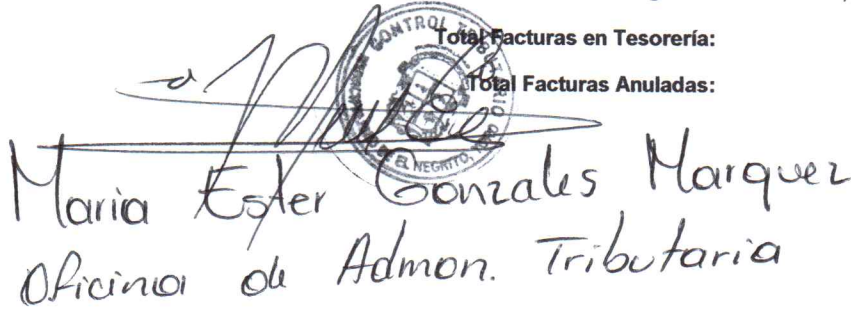 Total Facturas en Tesorería:
Total Facturas Anuladas:
CONTROL TRIBUTARIO
EL NEGRITO,
Maria Ester Gonzales Marquez
Oficina de Admon. Tributaria